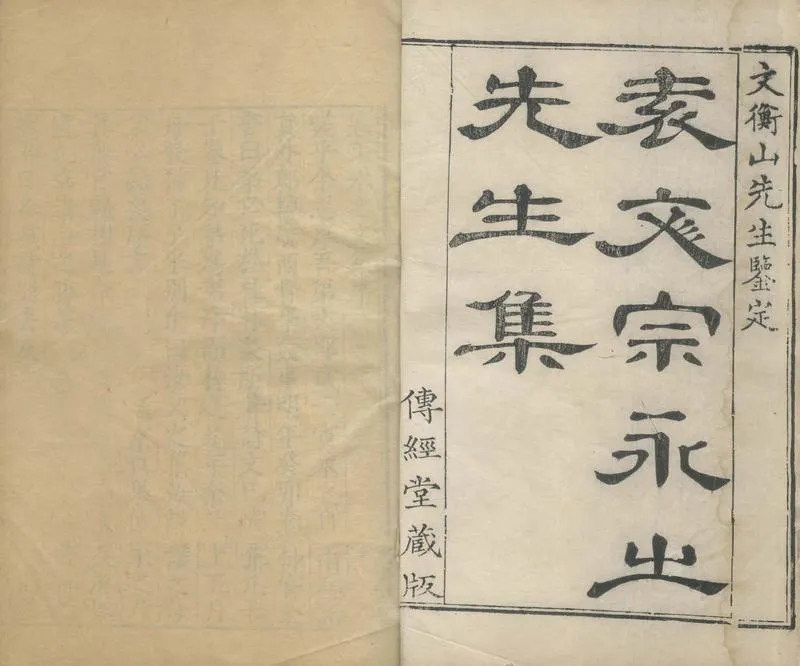 文衡山先生鑒定
袁文宗永之
先生集
傳經堂藏版